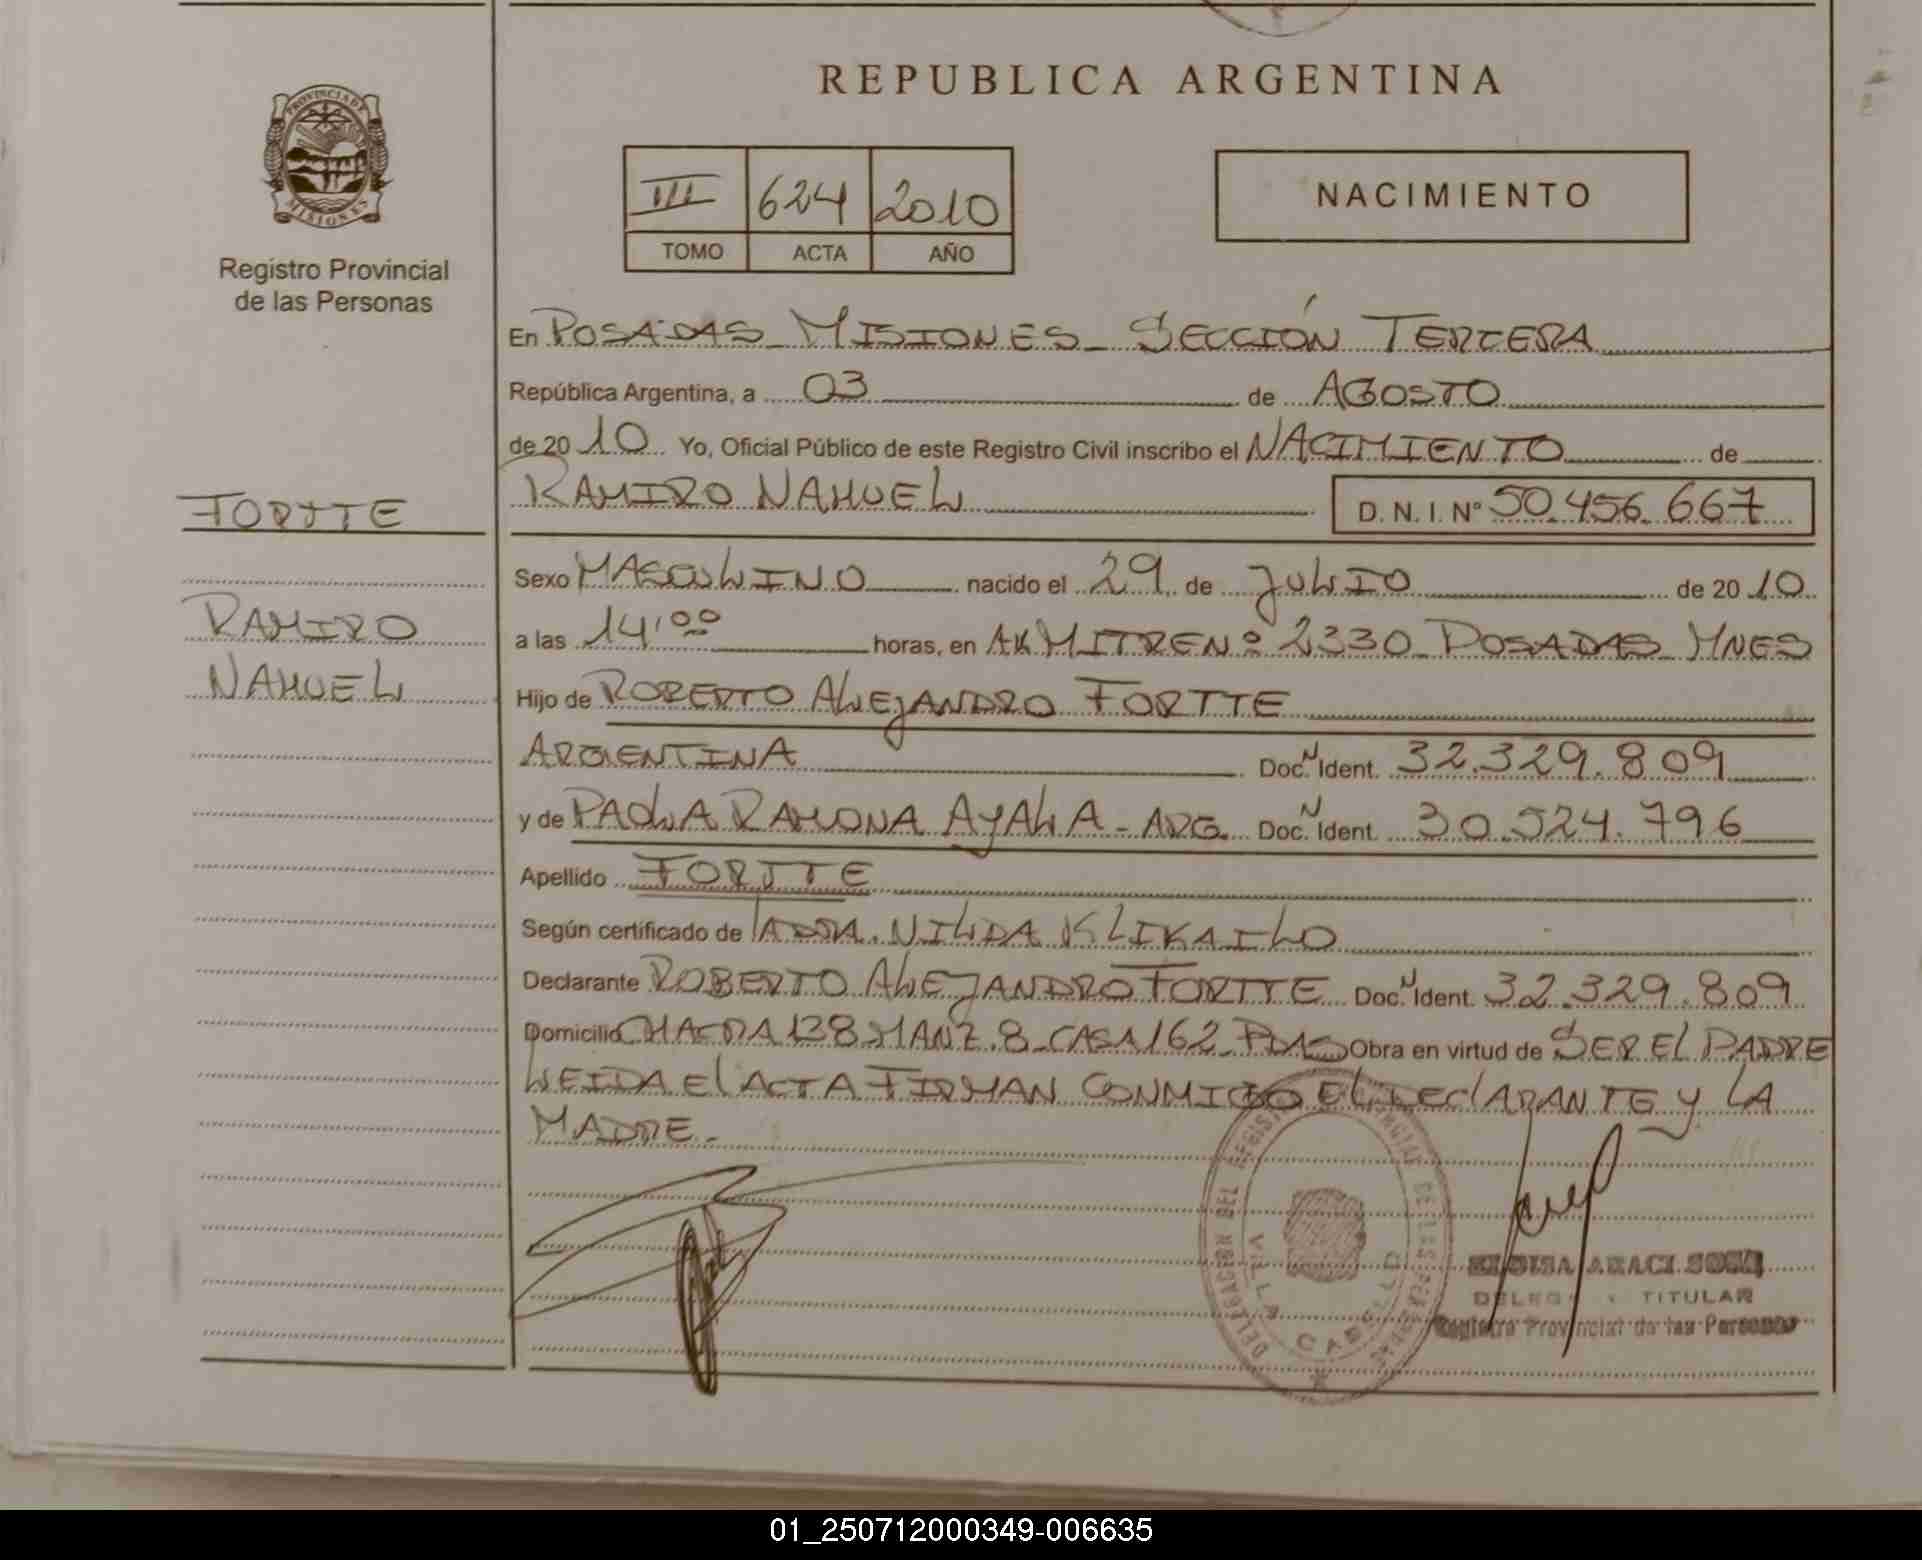 REPUBLICA ARGENTINA
PROVINCIA DE
MISIONES
Registro Provincial
de las Personas
III 624 2010
TOMO ACTA AÑO
NACIMIENTO
En POSADAS - MISIONES - SECCIÓN TERCERA
República Argentina, a 03 de AGOSTO
de 20 10 Yo, Oficial Público de este Registro Civil inscribo el NACIMIENTO de
RAMIRO NAHUEL D. N. I. Nº 50.456.667
FORTTE
RAMIRO
NAHUEL
Sexo MASCULINO nacido el 29 de JULIO de 20 10
a las 14'00 horas, en AV. MITRE Nº 2330 - POSADAS - MNES
Hijo de ROBERTO ALEJANDRO FORTTE
ARGENTINA Doc. N Ident. 32.329.809
y de PAOLA RAMONA AYALA - ARG. Doc. N Ident. 30.524.796
Apellido FORTTE
Según certificado de LA DRA. NILDA KLIKAILO
Declarante ROBERTO ALEJANDRO FORTTE Doc. N Ident. 32.329.809
Domicilio CHACRA 138 MANZ. 8 - CASA 162 - PDAS Obra en virtud de SER EL PADRE
LEIDA El ACTA FIRMAN CONMIGO EL DEClARANTE y LA
MADRE -
VILLA CABELLO
TITULAR
Registro Provincial de las Personas
01_250712000349-006635